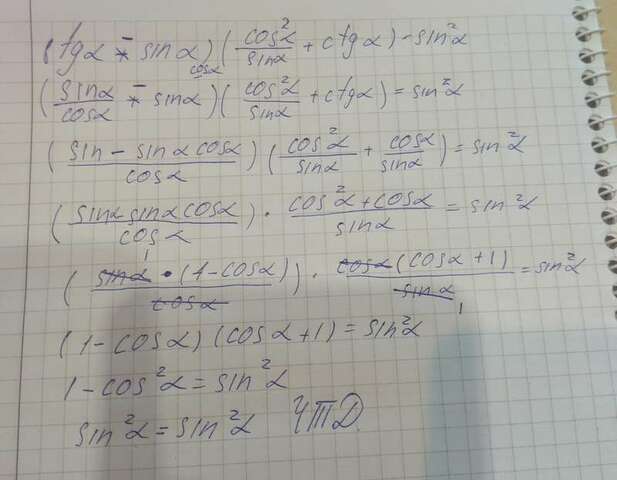 (tgα - sinα)(cos²α/sinα + ctgα) = sin²α
cosα
(sinα/cosα - sinα)(cos²α/sinα + ctgα) = sin²α
((sin - sinα cosα)/cosα)(cos²α/sinα + cosα/sinα) = sin²α
((sinα - sinα cosα)/cosα) · (cos²α + cosα)/sinα = sin²α
1
((sinα · (1 - cosα))/cosα) · (cosα (cosα + 1))/sinα = sin²α
1
(1 - cosα)(cosα + 1) = sin²α
1 - cos²α = sin²α
sin²α = sin²α ЧТД